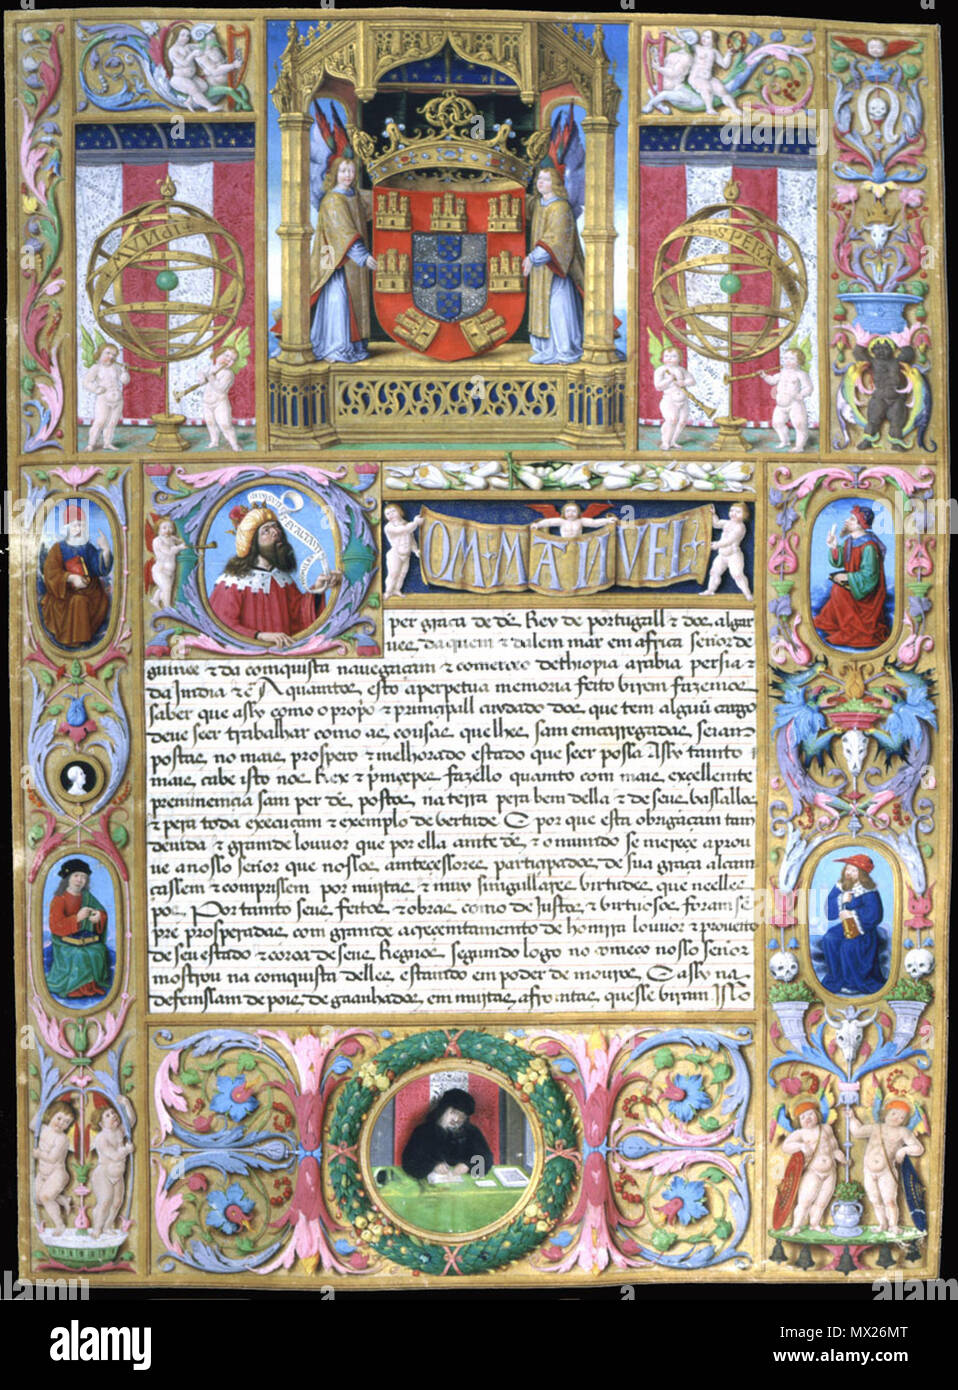 MVNDI
SPERA
EXALTAVIT
OM·MANVEL·
per graca de ds Rey de portugall & dos algar
ves daquem & dalem mar em africa señor de
guinee & da comquista navegacam & comercio dethiopia arabia persia &
da India & c A quantos esto a perpetua memoria feito virem fazemos
saber que assy como o propio & principall cuydado dos que tem alguũ cargo
deve seer trabalhar como as cousas que lhes sam emcarregadas seram
postas no mais prospero & melhorado estado que seer possa Assy tanto
mais cabe isto nos Rex & principes fazello quanto com mais excellemte
preminencia sam per ds postos na terra pera bem della & de seus vassallos
& pera toda execucam & exemplo de vertude E por que esta obrigacam tam
devida & grande louvor que por ella amte ds & o mundo se mereçe aprou
ve a nosso señor que nossos amtecessores partiçipados de sua graça alcam
cassem & comprissem por muytas & muy singullares virtudes que nelles
pos Por tamto seus feitos & obras como de Justos & virtuosos foram sẽ
pre prosperadas com grande acreçentamento de homrra louvor & proveito
de seu estado & coroa de seus Regnos segumdo logo no comeco nosso señor
mostrou na comquista delles estando em poder de mouros E assy na
defenssam de pois de gaanhados em muytas afromtas que sse viram Isso
alamy
alamy stock photo
IMAGE ID: MX26MT
www.alamy.com